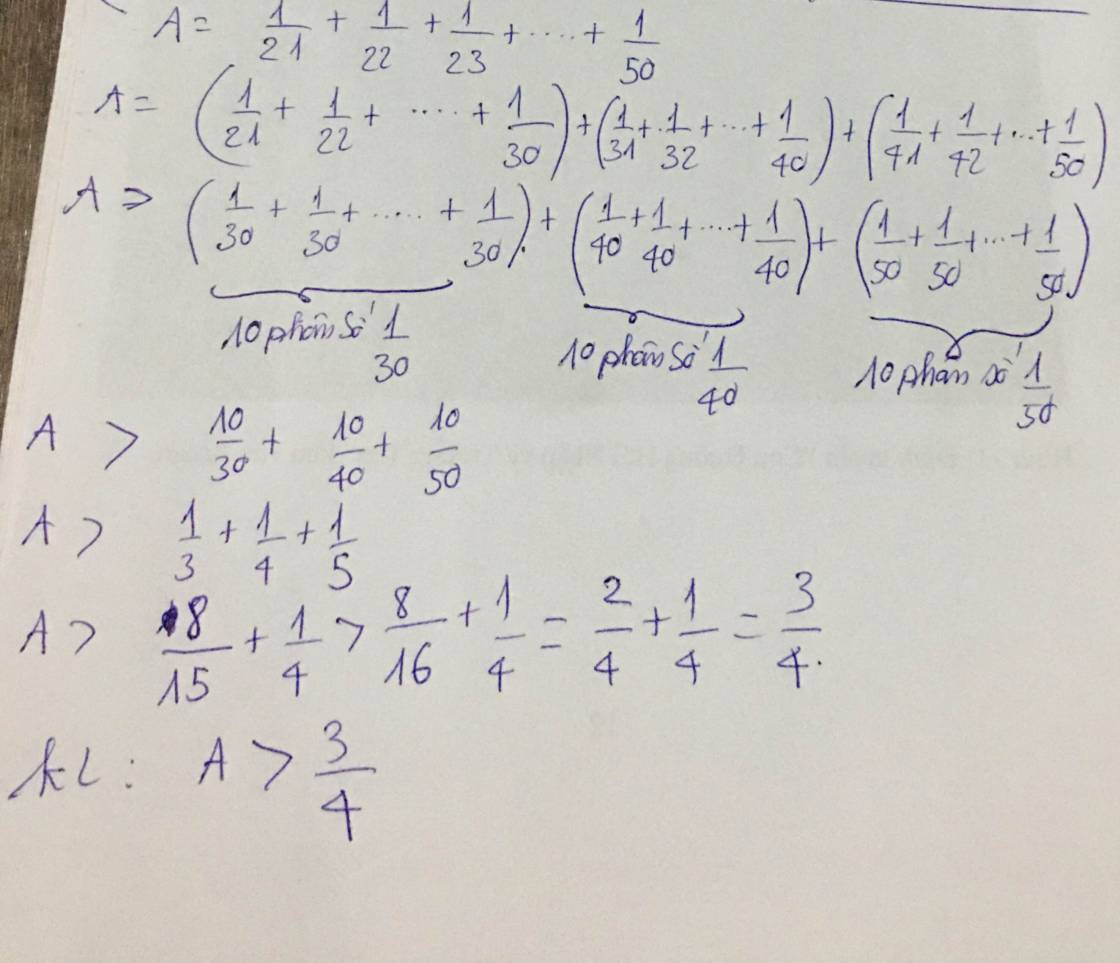 A = 1/21 + 1/22 + 1/23 + .... + 1/50
A = (1/21 + 1/22 + ..... + 1/30) + (1/31 + 1/32 + ... + 1/40) + (1/41 + 1/42 + ... + 1/50)
A > (1/30 + 1/30 + ..... + 1/30) + (1/40 + 1/40 + .... + 1/40) + (1/50 + 1/50 + ... + 1/50)
10 phân số 1/30 10 phân số 1/40 10 phân số 1/50
A > 10/30 + 10/40 + 10/50
A > 1/3 + 1/4 + 1/5
A > 8/15 + 1/4 > 8/16 + 1/4 = 2/4 + 1/4 = 3/4.
KL : A > 3/4